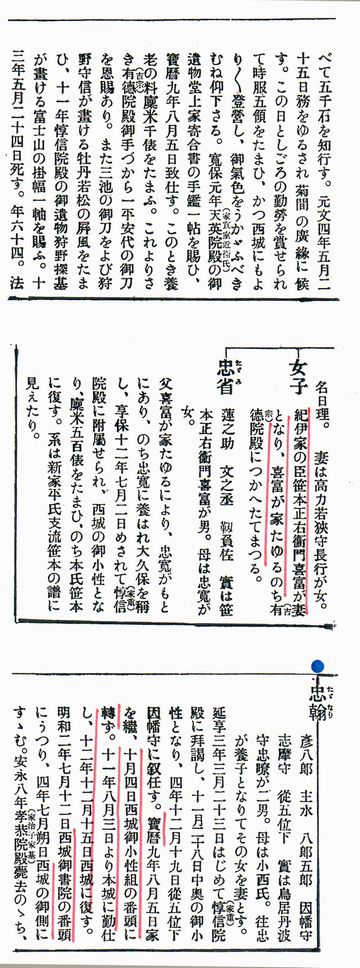 べて五千石を知行す。元文四年五月二
十五日務をゆるされ菊間の廣緣に候
す。この日としごろの勤勞を賞せられ
て時服五領をたまひ、かつ西城にもよ
り〱登營し、御氣色をうかゞふべき
むね仰下さる。寬保元年天英院殿(家宣室近衞氏)の御
遺物堂上家寄合書の手鑑一帖を賜ひ、
寶曆九年八月五日致仕す。このとき養
老の料廩米千俵をたまふ。これよりさ
き有德院殿(吉宗)御手づから一平安代の御刀
を恩賜あり。また三池の御刀をよび狩
野守信が畫ける牡丹若松の屏風をたま
ひ、十一年惇信院殿の御遺物狩野探基
が畫ける富士山の掛幅一軸を賜ふ。十
三年五月二十四日死す。年六十四。法
名日理。 妻は高力若狹守長行が女。
女子
紀伊家の臣笹本正右衞門喜富が妻
となり、喜富が家たゆるのち有(吉宗)
德院殿につかへたてまつる。
忠省
蓮之助 文之丞 靱負佐 實は笹
本正右衞門喜富が男。母は忠寬が
女。
父喜富が家たゆるにより、忠寬がもと
にあり、のち忠寬に養はれ大久保を稱
し、享保十二年七月二日めされて惇信(家重)
院殿に附屬せられ、西城の御小性とな
り、廩米五百俵をたまひ、のち本氏笹本
に復す。系は新家平氏支流笹本の譜に
見えたり。
忠翰
彥八郎 主水 八郎五郎 因幡守
志摩守 從五位下 實は鳥居丹波
守忠瞭が二男。母は小西氏。往忠
が養子となりてその女を妻とす。
延享三年三月二十三日はじめて惇信院(家重)
殿に拜謁し、十一月二十八日中奧の御小
性となり、四年十二月十九日從五位下
因幡守に敍任す。寶曆九年八月五日家
を繼、十月四日西城御小性組の番頭に
轉ず。十一年八月三日より本城に勤仕
し、十二年十二月十五日西城に復す。
明和二年七月十二日西城御書院の番頭
にうつり、四年七月朔日西城の御側に
すゝむ。安永八年孝恭院殿(家治子家基)薨去のゝち、